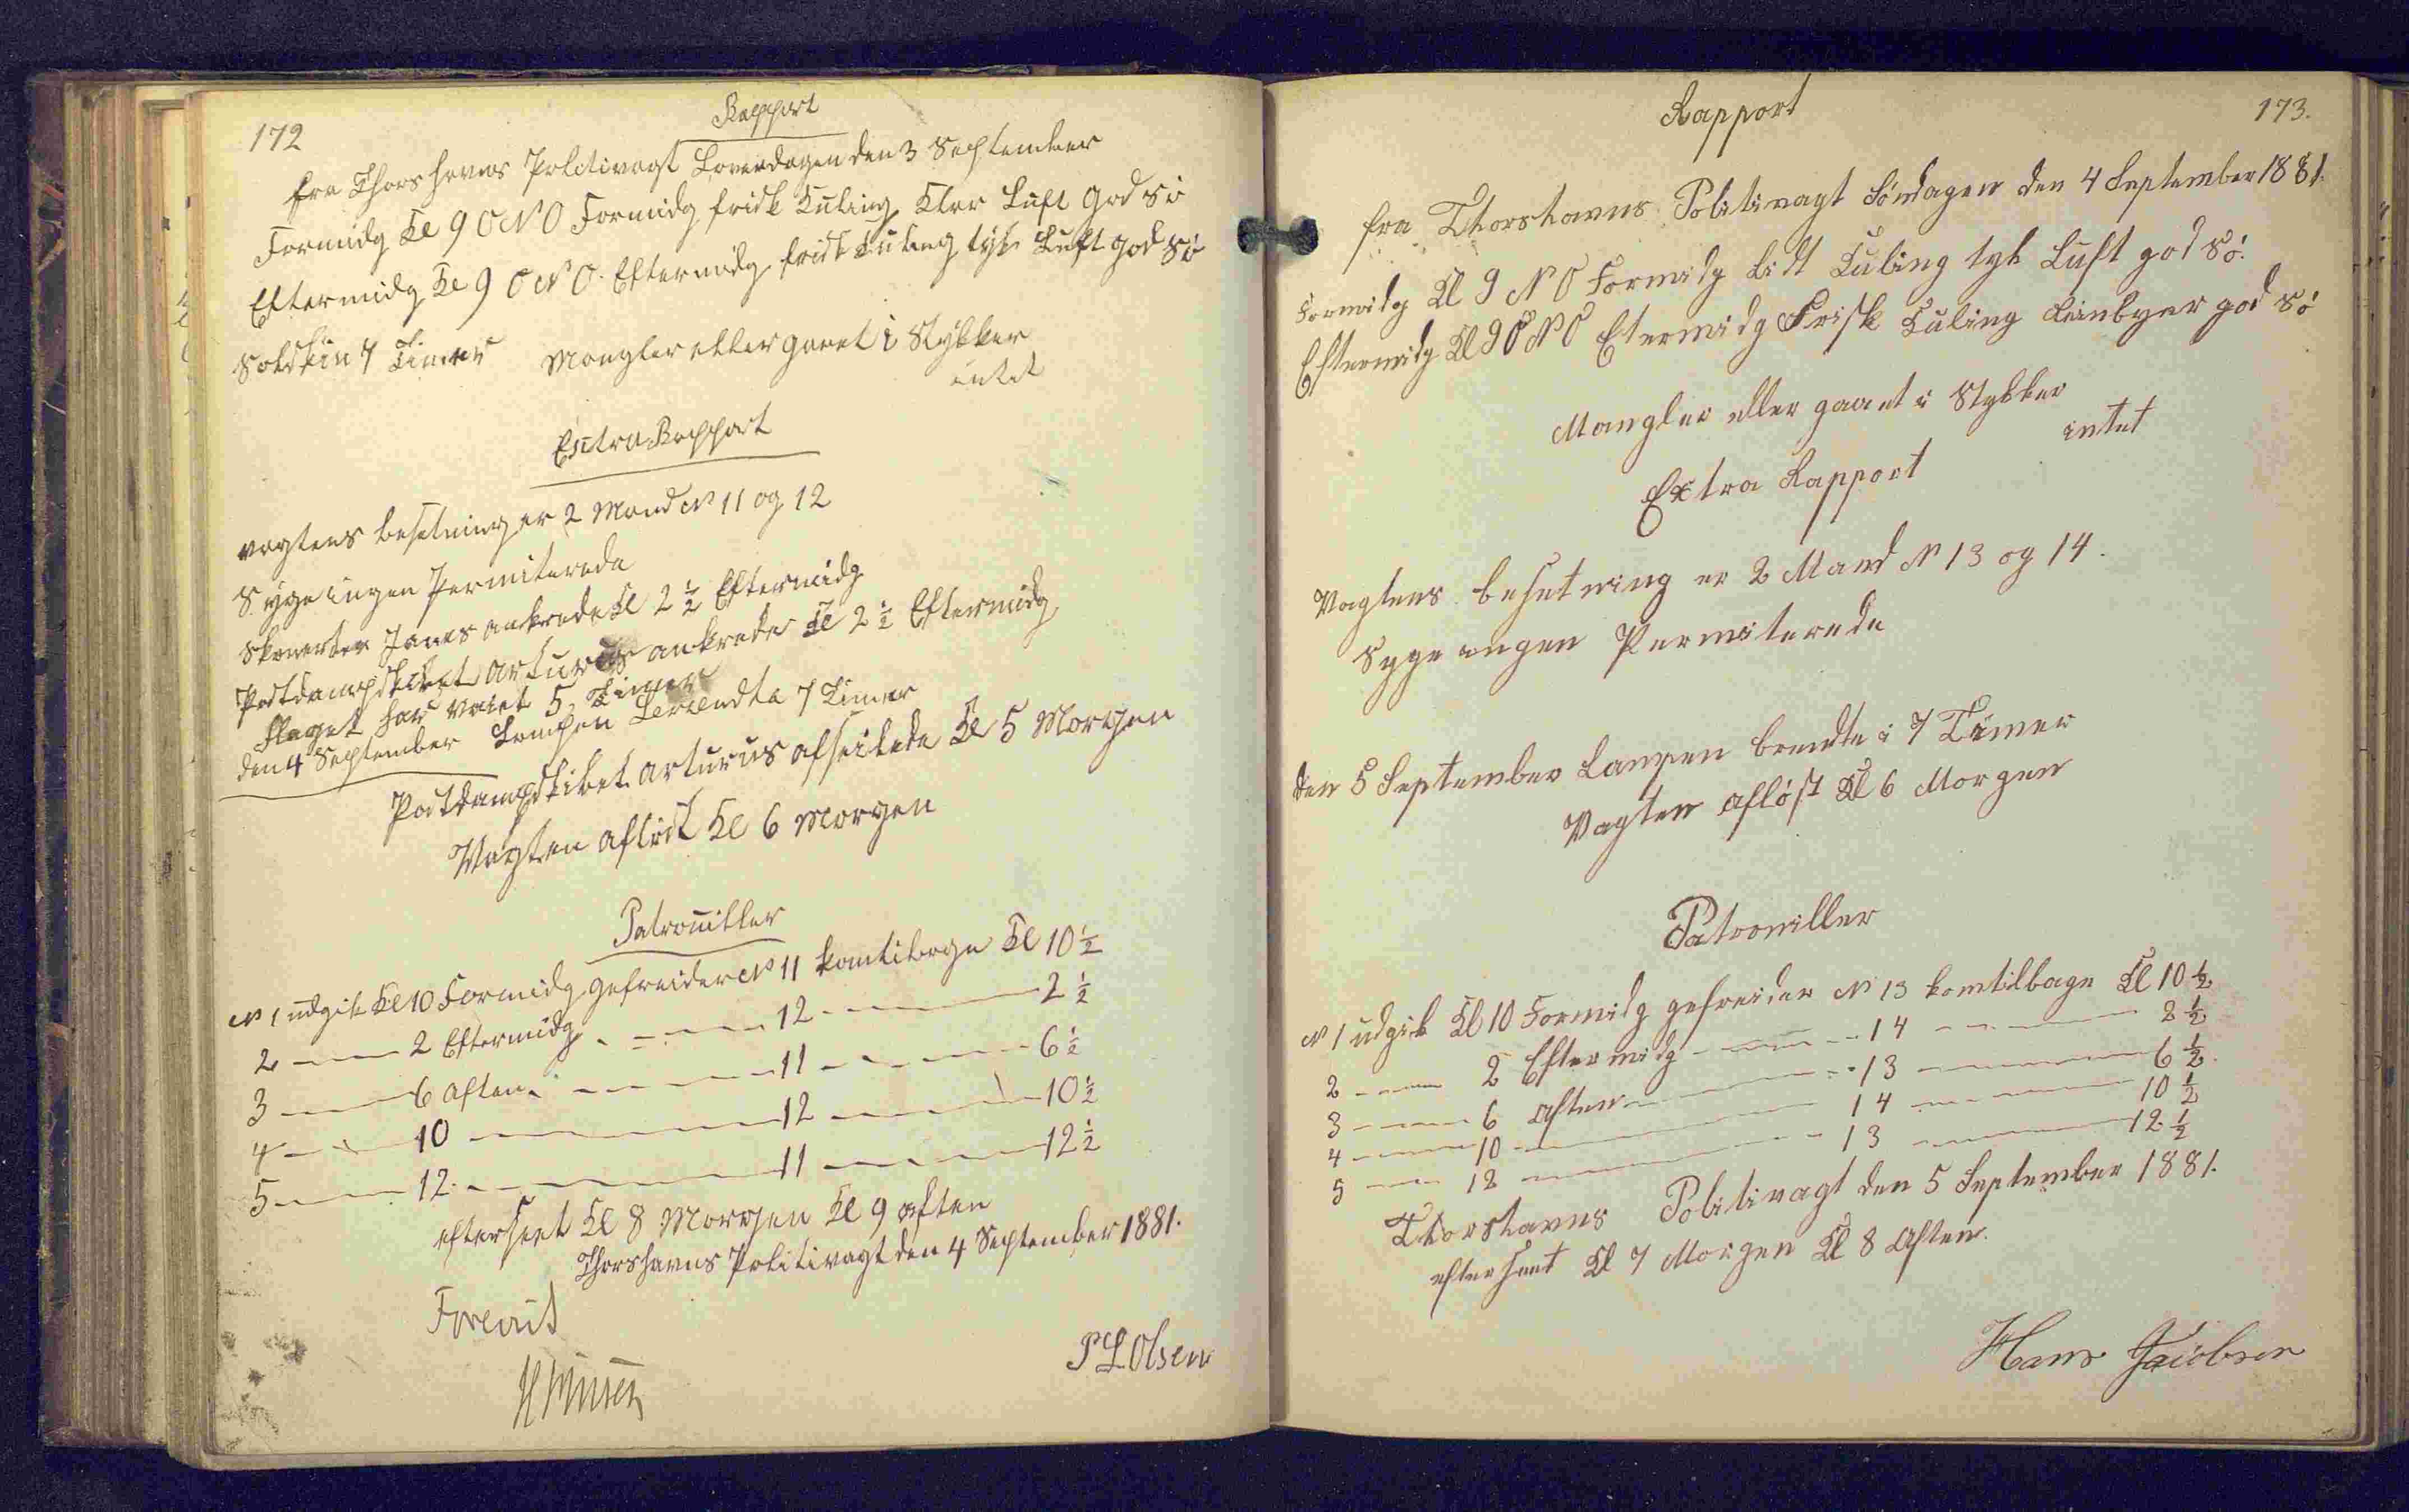 172
Rapport
fra Thorshavns Politivagt Löverdagen den 3 September
Formidg Kl 9 ONO Formidg frisk Kuling Klar Luft god Sö
Eftermidg Kl 9 ONO. Eftermidg frisk Kuling tyk Luft god Sö
Solskin 7 Timer Mangler eller gaaet i Stykker
intet
Extra Rapport
vagtens besetning er 2 Mand No 11 og 12
Syge ingen Permiterede
Skonerten Janes ankrede Kl 2 ½ Eftermidg
Postdampskibet Arturus ankrede Kl 2 ½ Eftermidg
Flaget har vaiet 5 Timer
den 4 September Lampen brændte 7 Timer
Postdampskibet Arturus afseilede Kl 5 Morgen
Vagten aflöst Kl 6 Morgen
Patrouiller
No 1 udgik Kl 10 Formidg gefreider No 11 komtilbage Kl 10 ½
2 — 2 Eftermidg — 12 — 2 ½
3 — 6 Aften — 11 — 6 ½
4 — 10 — 12 — 10 ½
5 — 12 — 11 — 12 ½
efterseet Kl 8 Morgen Kl 9 Aften
Thorshavns Politivagt den 4 September 1881.
Forevist
P L Olsen
173.
Rapport
fra Thorshavns Politivagt Söndagen den 4 September 1881.
Formidg Kl 9 NO Formidg lidt Kuling tyk Luft god Sö.
Eftermidg Kl 9 ONO Etermidg Frisk Kuling Reinbyer god Sö
Mangler eller gaaet i Stykker
intet
Extra Rapport
Vagtens besetning er 2 Mand No 13 og 14.
Syge ingen Permiterede
den 5 September Lampen brendte i 7 Timer
Vagten aflöst Kl 6 Morgen
Patrouiller
No 1 udgik Kl 10 Formidg gefreider No 13 komtilbage Kl 10 ½
2 — 2 Eftermidg — 14 — 2 ½
3 — 6 Aften — 13 — 6 ½.
4 — 10 — 14 — 10 ½
5 — 12 — 13 — 12 ½
Thorshavns Politivagt den 5 September 1881.
efterseet Kl 7 Morgen Kl 8 Aften.
Hans Jacobsen